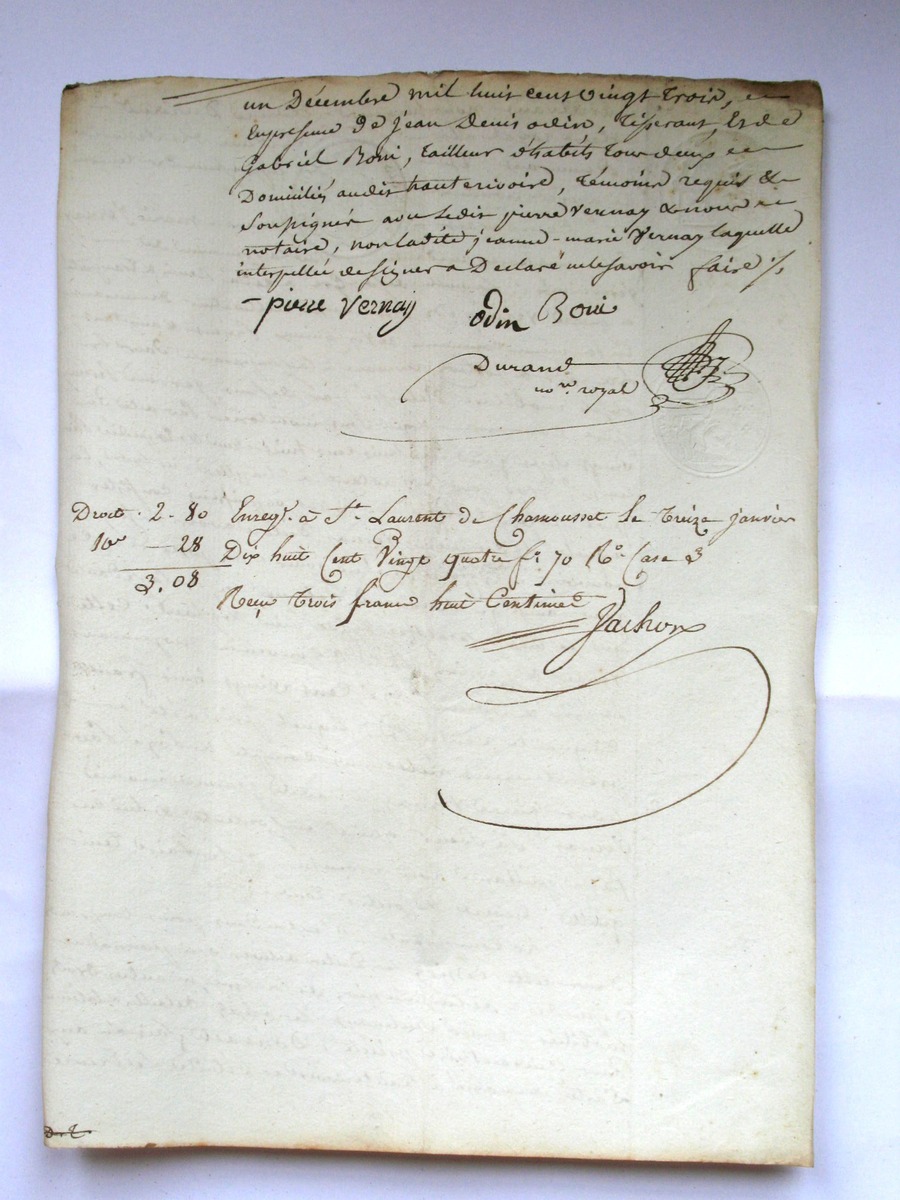 un Décembre mil huit cent vingt trois, en
En présence de jean Denis odin, Tisserant, Et de
Gabriel Boni, tailleur d'habits tous deux
Domiciliés audit hauterivoire, témoins requis &
Soussignés avec Ledit pierre Vernay & nous
notaire, non ladite jeanne-marie Vernay laquelle
interpellée de signer a Déclaré ne le savoir faire ./.
- pierre Vernay odin Boni
Durand
no.re royal
Droit . 2 - 80 Enregé. à St. Laurent de Chamousset le treize janvier
10e — 28 Dix huit Cent Vingt quatre f° 70 R° Case 3
3,08
Reçu trois francs huit Centimes